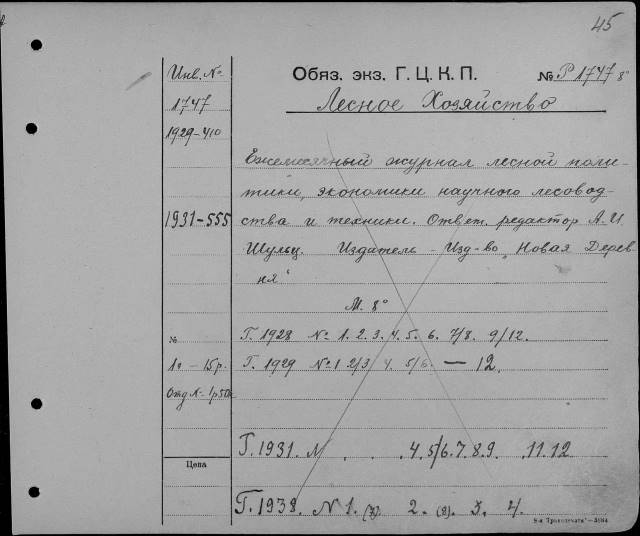 45
Инв. №
Обяз. экз. Г. Ц. К. П. № Р 1747 8°
1747
Лесное Хозяйство
1929-410
Ежемесячный журнал лесной поли-
тики, экономики научного лесовод-
1931-555
ства и техники. Ответ. редактор А.И.
Шульц. Издатель - Изд-во „Новая Дерев-
ня"
М. 8°
№
Г. 1928 № 1. 2. 3. 4. 5. 6. 7/8. 9/12.
1г - 15р.
Г. 1929 № 1 2/3 4. 5/6. — 12.
Отд № - 1р50к
Г. 1931. № . . 4. 5/6. 7. 8. 9. . 11. 12
Цена
Г. 1938. № 1. 2. 3. 4.